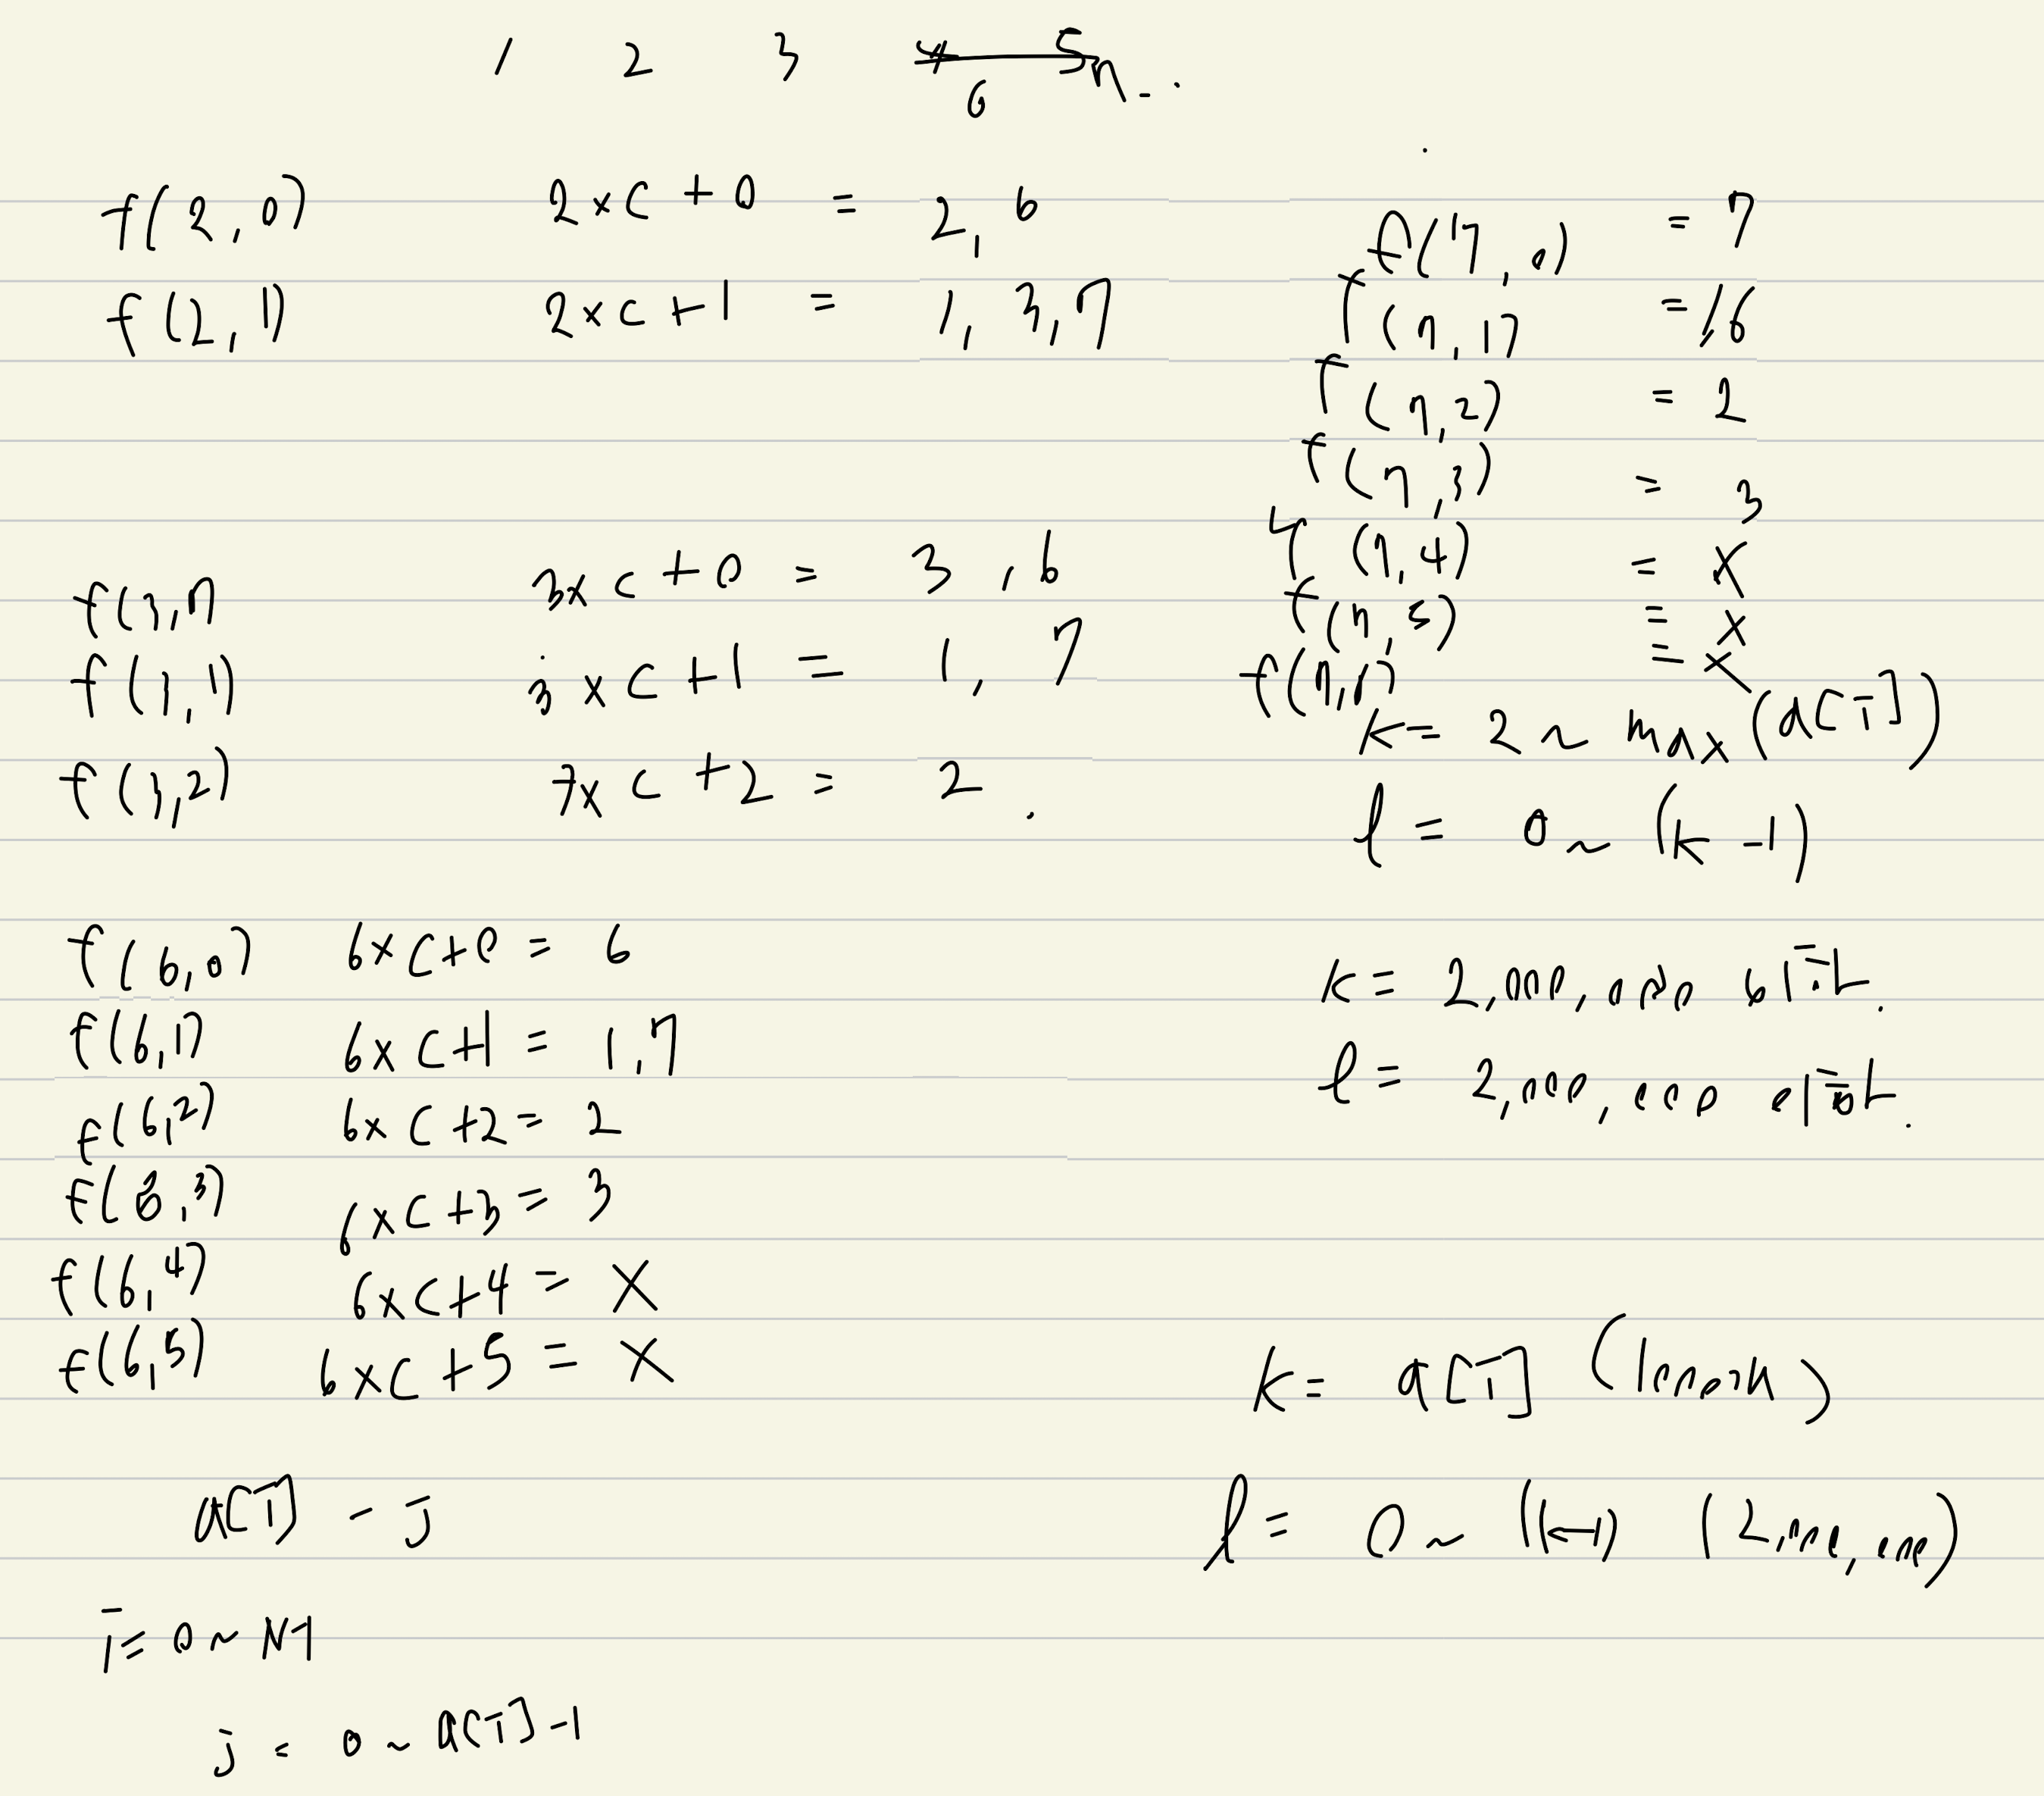 1 2 3 4 5 7 ...
6
f(2,0) 2×c+0 = 2,6
f(2,1) 2×c+1 = 1,3,7
f(3,0 3×c+0 = 3,6
f(3,1) 3×c+1 = 1,7
f(3,2) 3×c+2 = 2.
f(6,0) 6×c+0 = 6
f(6,1) 6×c+1 = 1,7
f(6,2) 6×c+2 = 2
f(6,3) 6×c+3 = 3
f(6,4) 6×c+4 = X
f(6,5) 6×c+5 = X
a[i] - j
i = 0 ~ N-1
j = 0 ~ a[i]-1
f(7,0) = 7
f(7,1) = 1,6
f(7,2) = 2
f(7,3) = 3
f(7,4) = X
f(7,5) = X
f(7,6) = X
k = 2 ~ max(a[i])
l = 0 ~ (k-1)
k = 2,000,000
l = 2,000,000
k = a[i]
l = 0 ~ (k-1) (2,000,000)